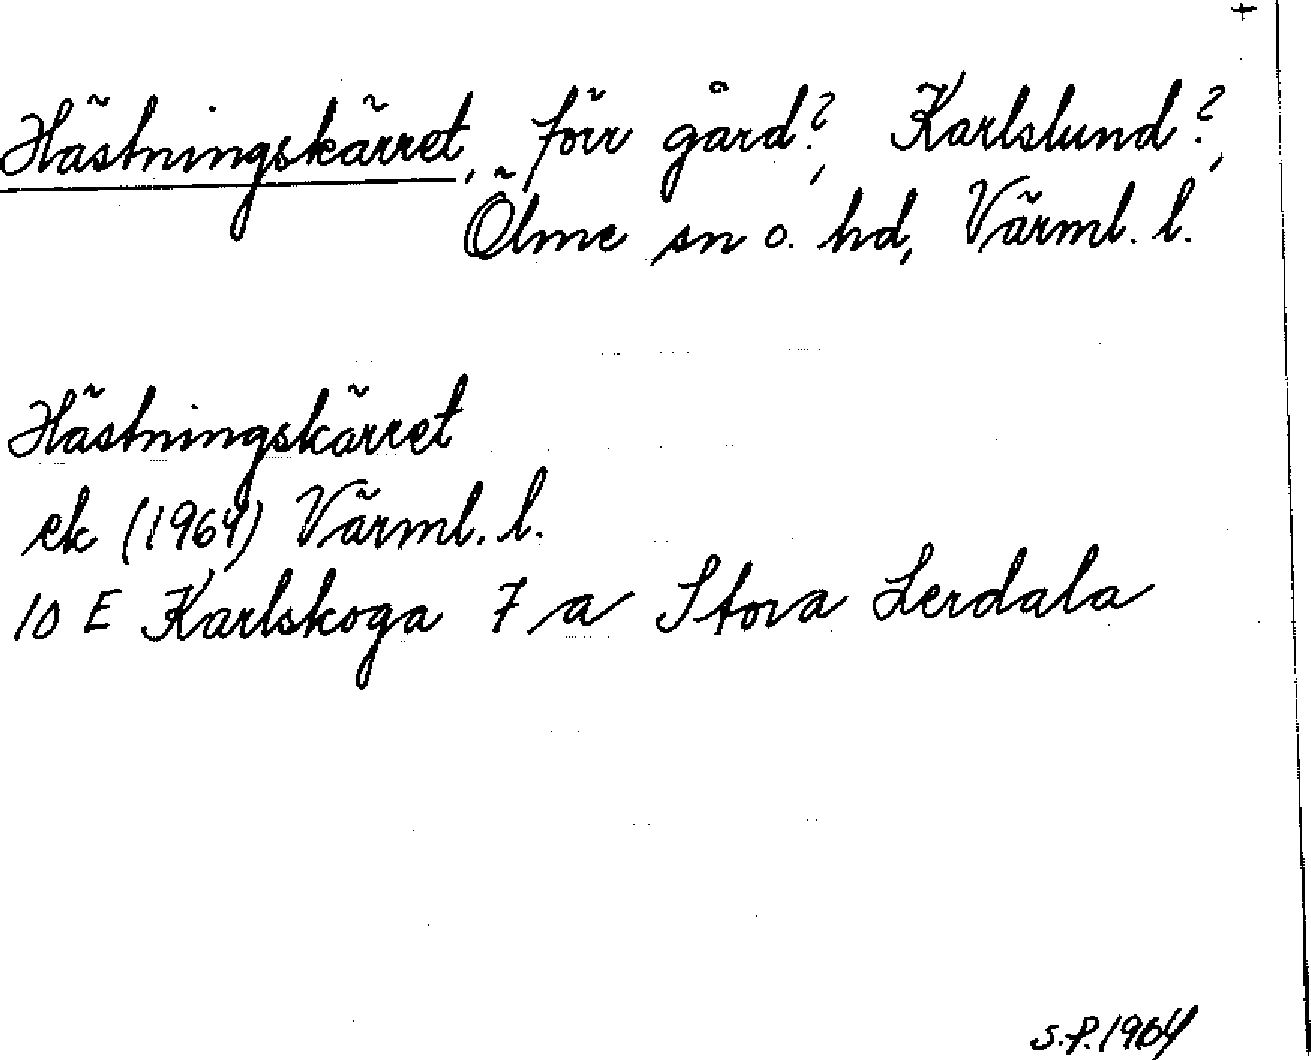 +
Hästningskärret, förr gård?, Karlslund?,
Ölme sn o. hd, Värml. l.
Hästningskärret
ek (1964) Värml. l.
10 E Karlskoga 7 a Stora Lerdala
S.P. 1964